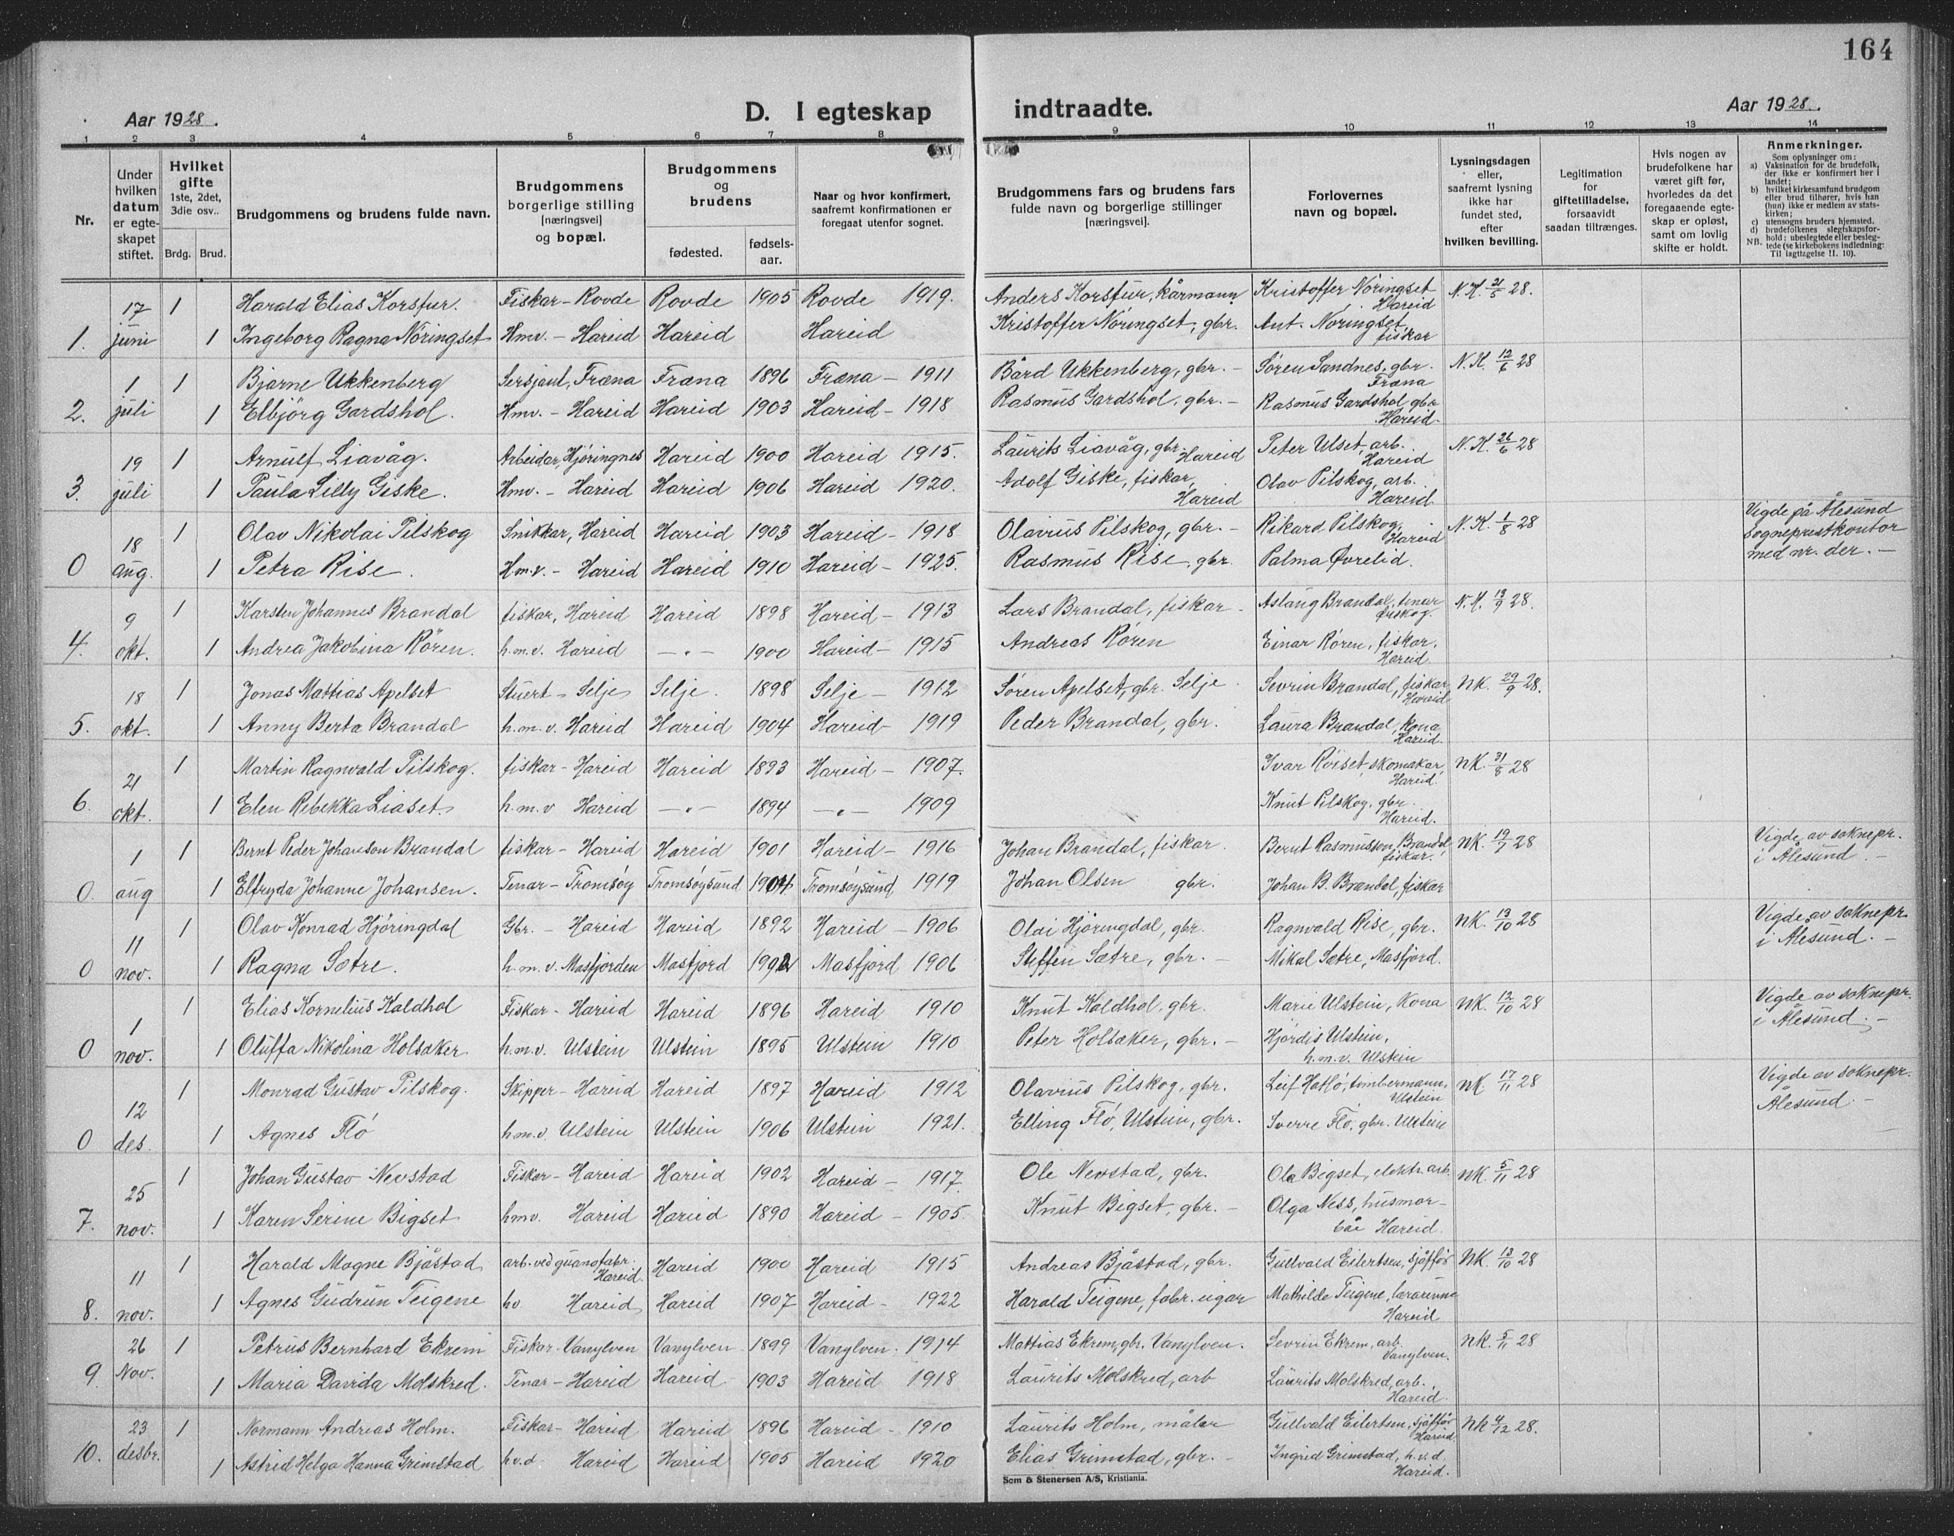 164
Aar 1928.
D. I egteskap indtraadte.
Aar 1928.
1 2 3 4 5 6 7 8 9 10 11 12 13 14
Nr.
Under hvilken datum er egteskapet stiftet.
Hvilket gifte 1ste, 2det, 3die osv..
Brdg. Brud.
Brudgommens og brudens fulde navn.
Brudgommens borgerlige stilling [næringsvei] og bopæl.
Brudgommens og brudens
fødested.
fødselsaar.
Naar og hvor konfirmert, saafremt konfirmationen er foregaat utenfor sognet.
Brudgommens fars og brudens fars fulde navn og borgerlige stillinger [næringsvei].
Forlovernes navn og bopæl.
Lysningsdagen eller, saafremt lysning ikke har fundet sted, efter hvilken bevilling.
Legitimation for giftetilladelse, forsaavidt saadan tiltrænges.
Hvis nogen av brudefolkene har været gift før, hvorledes da det foregaaende egteskap er opløst, samt om lovlig skifte er holdt.
Anmerkninger.
Som oplysninger om:
a) Vaksination for de brudefolk, der ikke er konfirmert her i landet;
b) hvilket kirkesamfund brudgom eller brud tilhører, hvis han (hun) ikke er medlem av statskirken;
c) utensogns bruders hjemsted.
d) brudefolkenes slegtskapsforhold: ubeslegtede eller beslegtede (se kirkebokens indledning:
NB. Til iagttagelse II. 10).
17 1 Harald Elias Korsfur. Fiskar - Rovde Rovde 1905 Rovde 1919. Anders Korsfur, kårmann Kristoffer Nöringset Hareid N.K. 21/5 28.
1. juni 1 Ingeborg Ragna Nöringset Hmv. - Hareid Hareid Hareid Kristoffer Nöringset, gbr. Ant. Nöringset, fiskar
1 1 Bjarne Ukkenberg Sersjant, Fræna Fræna 1896 Fræna - 1911 Bård Ukkenberg, gbr. - Søren Sandnes, gbr. Fræna N.K. 12/6 28
2. juli 1 Elbjörg Gardshol. Hmv. - Hareid Hareid 1903 Hareid - 1918 Rasmus Gardshol, gbr. - Rasmus Gardshol gbr Hareid.
19 1 Arnulf Liavåg. Arbeidar, Hjøringnes Hareid 1900 Hareid 1915. Laurits Liavåg, gbr. Hareid Peter Ulset, arb. Hareid N.K. 26/6 28
3. juli 1 Paula Lilly Giske. Hmv. - Hareid Hareid 1906 Hareid 1920. Adolf Giske, fiskar, Hareid Olav Pilskog, arb. Hareid
18 1 Olav Nikolai Pilskog Snikkar, Hareid Hareid 1903 Hareid - 1918 Olavus Pilskog, gbr. - Rikard Pilskog, Hareid N.K. 1/8 28 Vigde på Ålesund sogneprestkontor med nr. der. -
0 aug. 1 Petra Rise. H.m.v. - Hareid Hareid 1910 Hareid - 1925. Rasmus Rise, gbr. Palma Øvrelid.
9 1 Karsten Johannes Brandal fiskar, Hareid Hareid 1898 Hareid - 1913 Lars Brandal, fiskar - Aslaug Brandal, tenar N.K. 13/9 28.
4. okt. 1 Andrea Jakobina Røren. h.m.v. Hareid - " - 1900 Hareid - 1915 Andreas Røren Einar Røren, fiskar, Hareid
18 1 Jonas Mattias Apelset Stuert - Selje Selje. 1898 Selje - 1912 Søren Apelset, gbr. Selje Sevrin Brandal, fiskar Hareid NK. 29/9 28.
5. okt. 1 Anny Berta Brandal h.m.v. Hareid Hareid 1904 Hareid - 1919 Peder Brandal, gbr. Laura Brandal, kona Hareid.
21 1 Martin Ragnvald Pilskog. fiskar - Hareid Hareid 1893 Hareid - 1907. Ivar Röiset, skomakar, Hareid. NK. 31/8 28
6. okt. 1 Elen Rebekka Liaset h.m.v Hareid - " - 1894 - " - 1909 Knut Pilskog, gbr. Hareid.
1 1 Bernt Peder Johansen Brandal fiskar - Hareid Hareid 1901 Hareid - 1916 Johan Brandal, fiskar. Bernt Rasmussen, Brandal, fiskar. NK. 19/7 28 Vigde av soknepr. i Ålesund. -
0 aug 1 Elfryda Johanne Johansen. Tenar - Tromsøy Tromsøysund 1904 Tromsøysund 1919 Johan Olsen gbr. Johan B. Brandal, fiskar
11 1 Olav Konrad Hjöringdal Gbr. - Hareid Hareid 1892 Hareid - 1906 Olai Hjöringdal, gbr. Ragnvald Rise, gbr. NK. 13/10 28 Vigde av soknepr. i Ålesund. -
0 nov. 1 Ragna Sætre. h.m.v. Masfjorden Masfjord Masfjord 1906 Steffen Sætre, gbr. - Mikal Sætre, Masfjord.
1 1 Elias Kornelius Kaldhol Fiskar - Hareid Hareid 1896 Hareid 1910 Knut Kaldhol, gbr. Marie Ulstein, Kona NK. 12/10 28 Vigde av soknepr. i Ålesund. -
0 nov. 1 Oluffa Nikolina Holsaker. h.m.v. Ulstein Ulstein 1895 Ulstein 1910 Peter Holsaker, gbr. - Hjördis Ulstein, h.m.v. Ulstein
12 1 Monrad Gustav Pilskog. Skipper - Hareid Hareid 1897 Hareid 1912 Olavus Pilskog, gbr. Leif Hatlö, timbermann, Ulstein NK. 17/11 28 Vigde av soknepr. Ålesund. -
0 des. 1 Agnes Flö h.m.v Ulstein Ulstein 1906 Ulstein 1921. Elling Flö, Ulstein, gbr. Sverre Flö, gbr. Ulstein
25 1 Johan Gustav Nevstad Fiskar - Hareid Hareid 1902 Hareid - 1917. Ole Nevstad, gbr. Ola Bigset, elektr. arb. NK. 5/11 28
7. nov. 1 Karen Serine Bigset hmv. Hareid Hareid 1890 Hareid - 1905. Knut Bigset, gbr. - Olga Ness, husmor - Hareid.
11 1 Harald Magne Bjåstad arb. ved guanofabr. Hareid Hareid 1900 Hareid 1915 Andreas Bjåstad, gbr. Gullvald Eilertsen, sjåffør NK. 13/10 28
8. nov. 1 Agnes Gudrun Teigene hv Hareid Hareid 1907 Hareid - 1922 Harald Teigene, fabr. eigar Mathilde Teigene, lærarinne Hareid
26 1 Petrus Bernhard Ekrem Fiskar - Vanylven Vanylven 1899 Vanylven. 1914 Mattias Ekrem, gbr. Vanylven. Sevrin Ekrem, arb. Vanylven. NK. 5/11 28
9 Nov. 1 Maria Davida Molskred. Tenar - Hareid Hareid 1903 Hareid 1918 Laurits Molskred, arb Laurits Molskred, arb. Hareid.
23 1 Normann Andreas Holm. Fiskar - Hareid Hareid 1896 Hareid - 1910 Laurits Holm, målar Gullvald Eilertsen, sjåffør Hareid NK 28.
10. desbr. 1 Astrid Helga Hanna Grimstad h.v.d Hareid Hareid 1905 Hareid 1920 Elias Grimstad, gbr. - Ingrid Grimstad, h.v.d, Hareid.
Sem & Stenersen A/S, Kristiania.